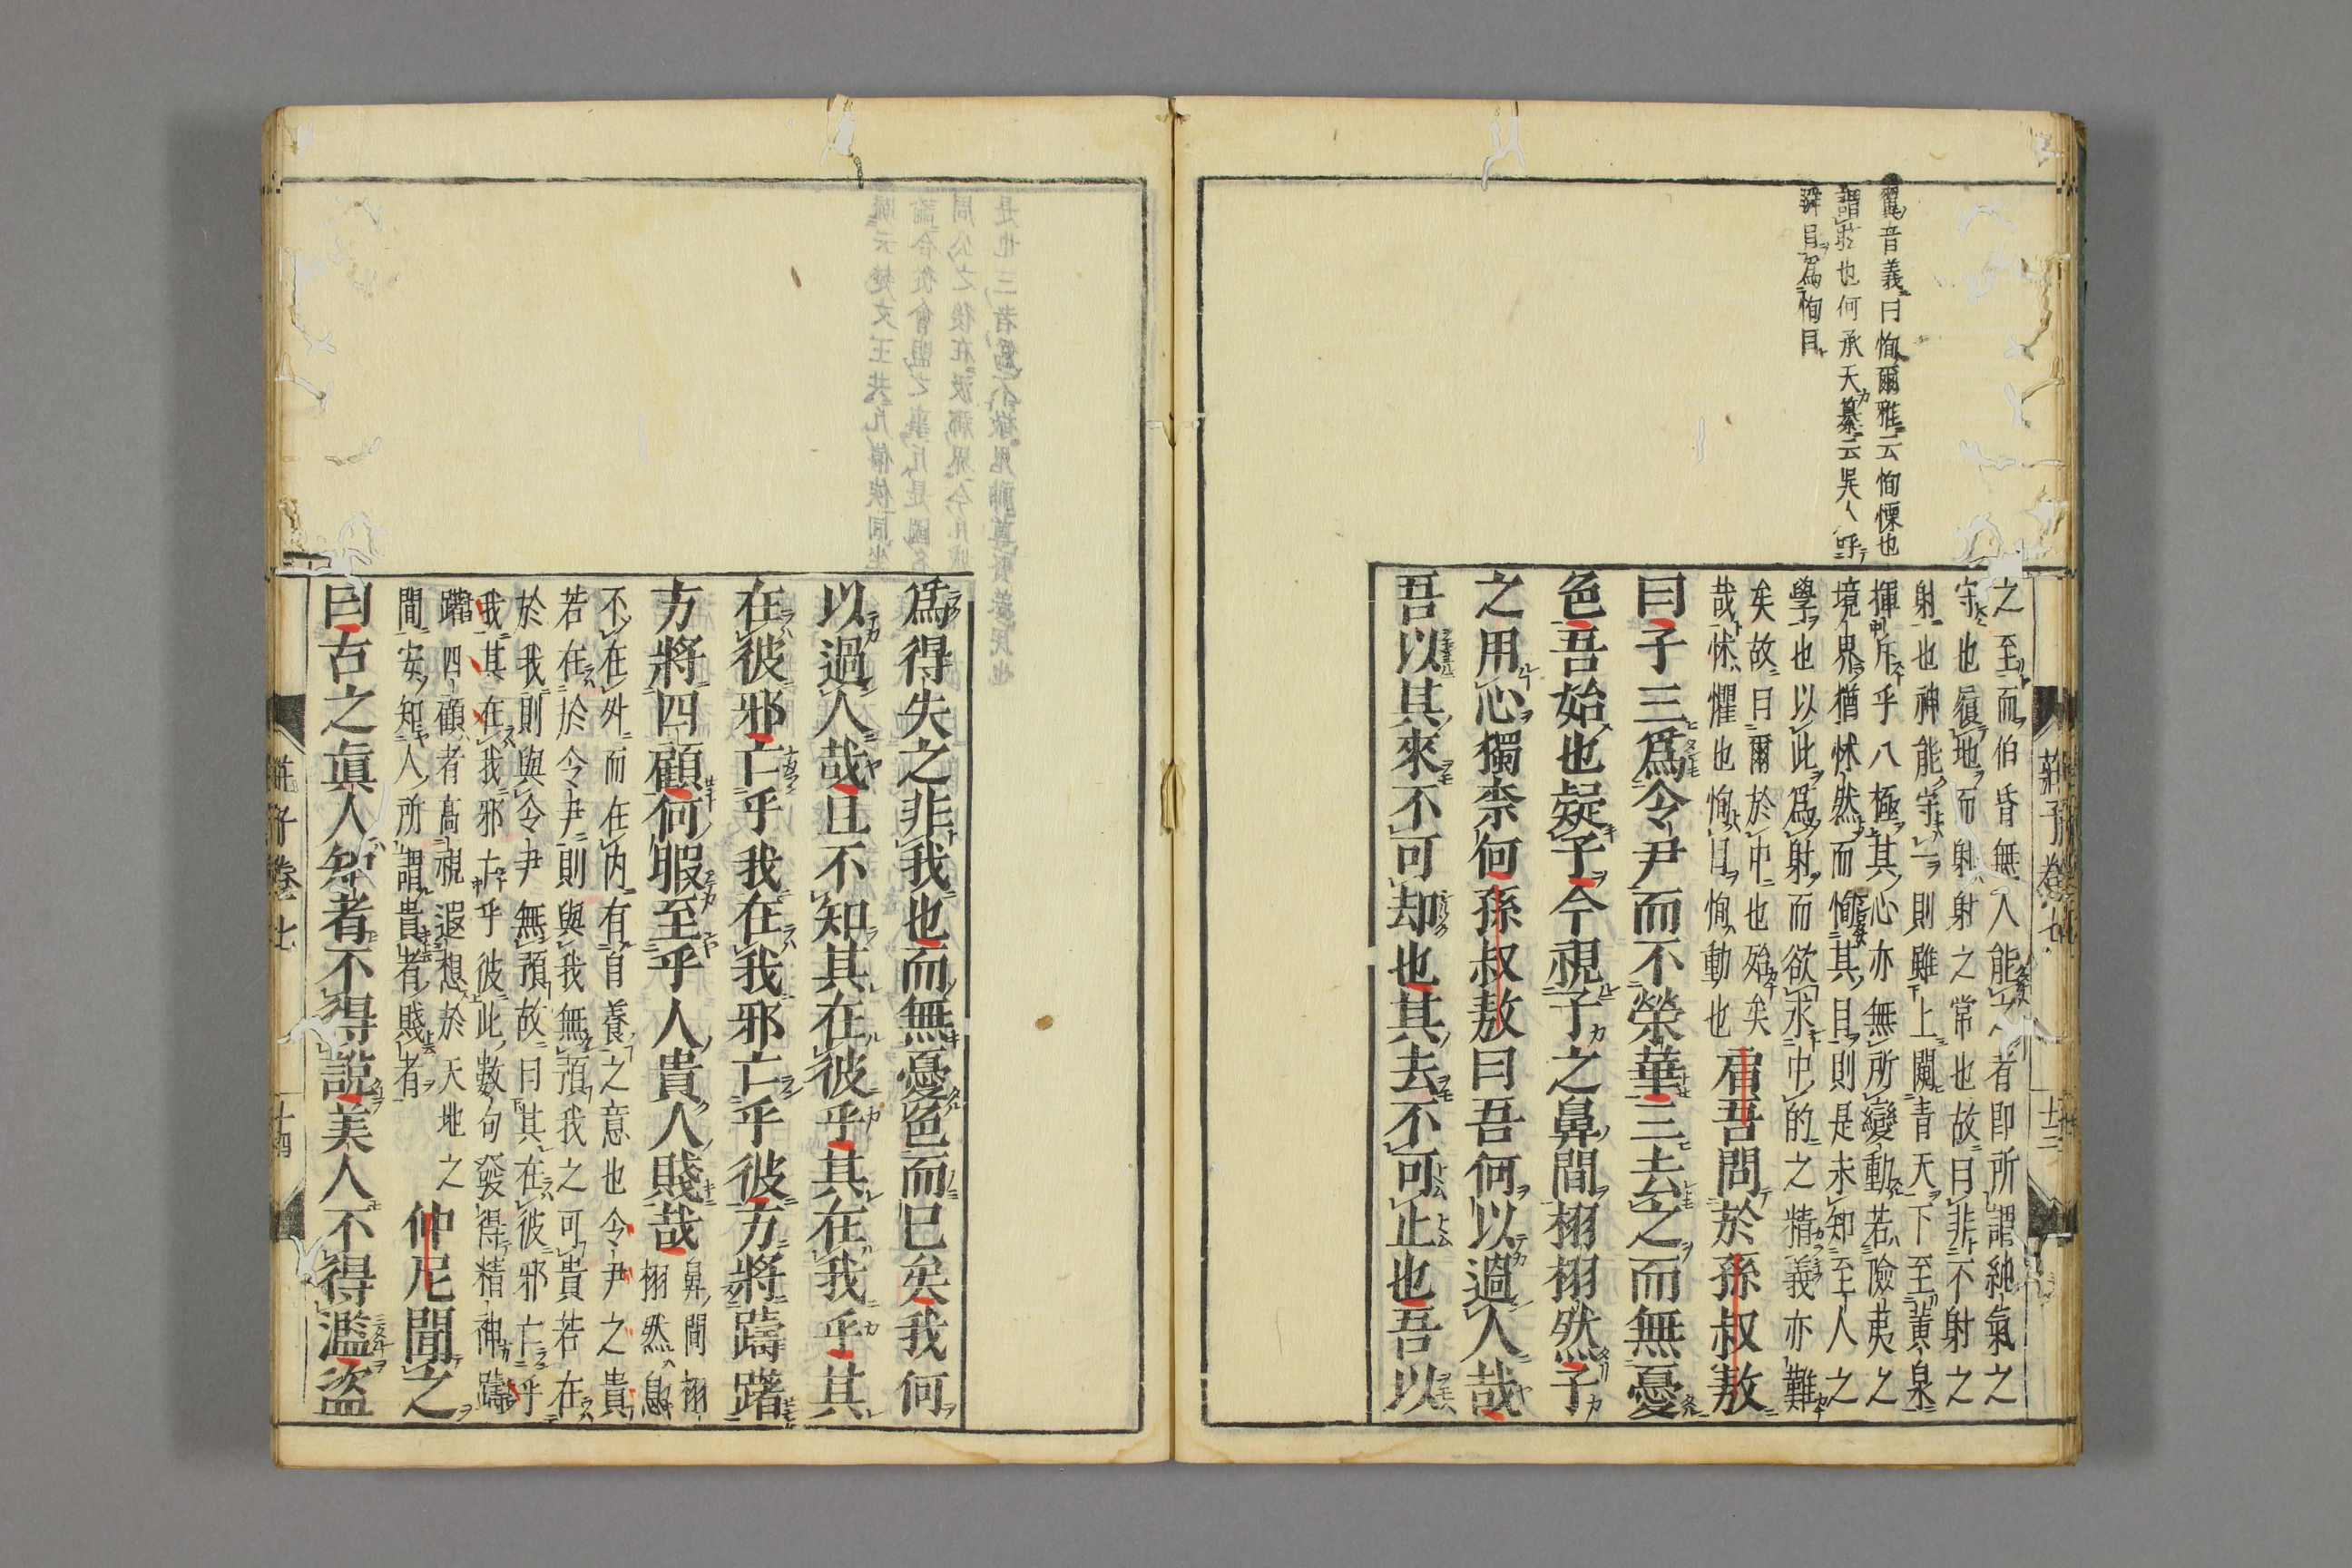 翼音義曰恂爾雅云恂慄也
謂眩也何承天纂云吳人呼
瞬目爲恂目
之至而伯昏無人能之者即所謂純氣之
守也履地而射射之常也故曰非不射之
射也神能守一則雖上闚青天下至黃泉
揮斥乎八極其心亦無所變動若險夷之
境界猶怵然而恂其目則是未知至人之
學也以此爲射而欲求中的之精義亦難
矣故曰爾於中也殆矣
哉怵懼也恂目恂動也
肩吾問於孫叔敖
曰子三爲令尹而不榮華三去之而無憂
色吾始也疑子今視子之鼻間栩栩然子
之用心獨柰何孫叔敖曰吾何以過人哉
吾以其來不可却也其去不可止也吾以
莊子卷七
十三
爲得失之非我也而無憂色而已矣我何
以過人哉且不知其在彼乎其在我乎其
在彼邪亡乎我在我邪亡乎彼方將躊躇
方將四顧何暇至乎人貴人賤哉
鼻間栩
栩然息
不在外而在内有自養之意也令尹之貴
若在於令尹則與我無預我之可貴若在
於我則與令尹無預故曰其在彼邪亡乎
我其在我邪亡乎彼此數句發得精神躊
躇四顧者高視遐想於天地之
間安知人所謂貴者賤者
仲尼聞之
曰古之眞人知者不得說美人不得濫盜
莊子卷七
十四